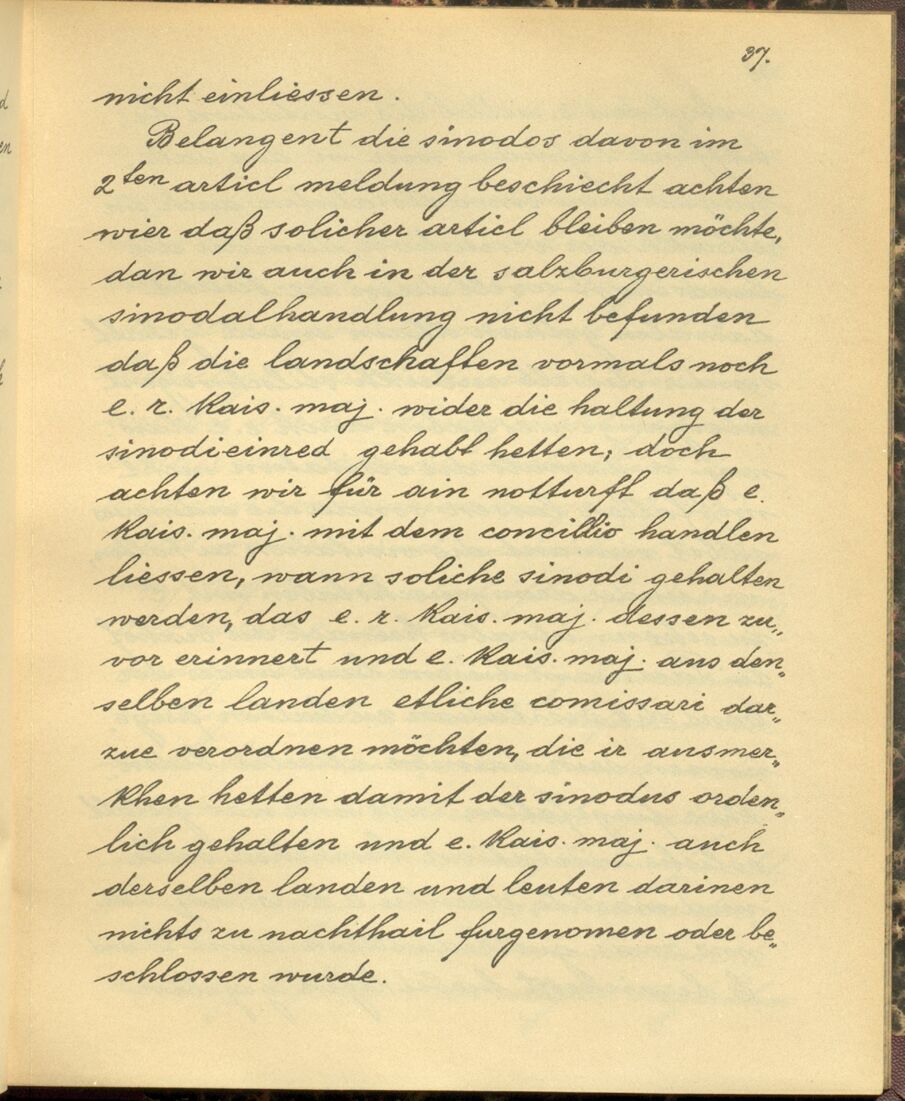 37.
nicht einliessen.
Belangent die sinodos davon im
2ten articl meldung beschiecht achten
wier daß solicher articl bleiben möchte,
dan wir auch in der salzburgerischen
sinodalhandlung nicht befunden
daß die landschaften vormals noch
e. r. Kais. maj. wider die haltung der
sinodi einred gehabt hetten; doch
achten wir für ain notturft daß e.
Kais. maj. mit dem concillio handlen
liessen, wann soliche sinodi gehalten
werden, das e. r. Kais. maj. dessen zu„
vor erinnert und e. Kais. maj. aus den„
selben landen etliche comissari dar„
zue verordnen möchten, die ir ausmer„
khen hetten damit der sinodus orden„
lich gehalten und e. Kais. maj. auch
derselben landen und leuten darinen
nichts zu nachthail furgenomen oder be„
schlossen wurde.